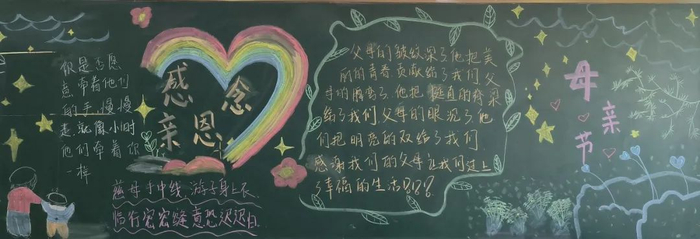 你是否愿
意牵着他们
的手,慢慢
走就像小时
他们牵着你
一样
感 念
亲 恩
慈母手中线 游子身上衣
临行密密缝 意恐迟迟归
父母的皱纹深了他把美
丽的青春贡献给了我们父
母的腰弯了他把挺直的脊梁
给了我们父母的眼沉了他
们把明亮的双给了我们
感谢我们的父母让我们过上
了幸福的生活
母
亲
节